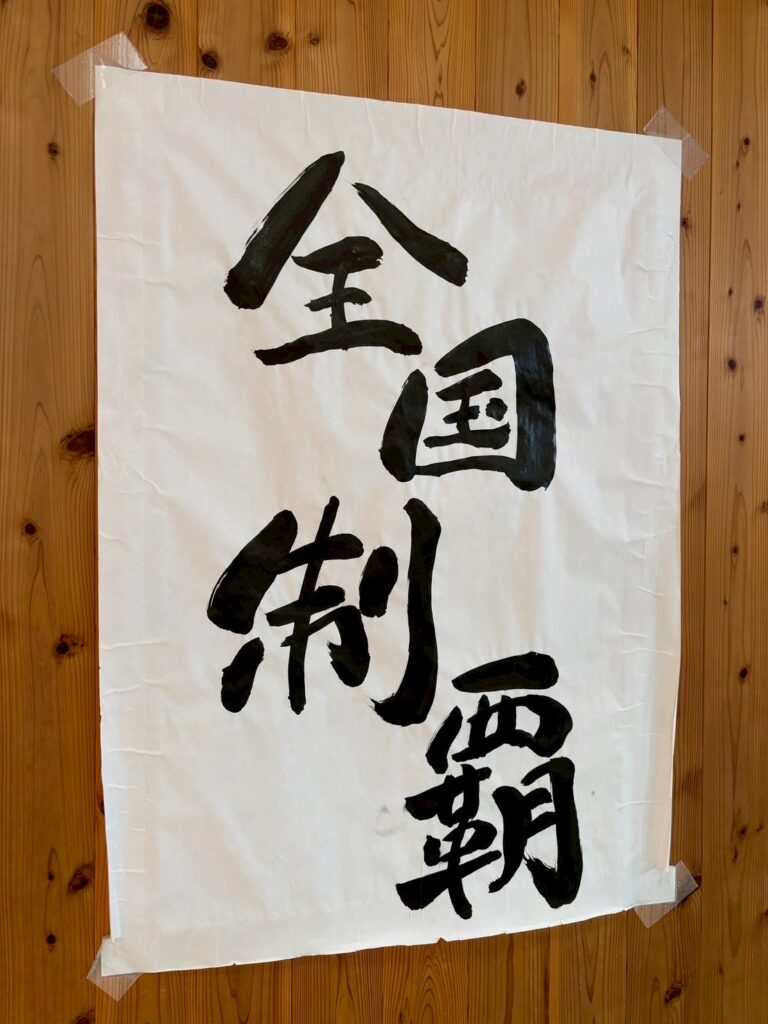 全国制覇